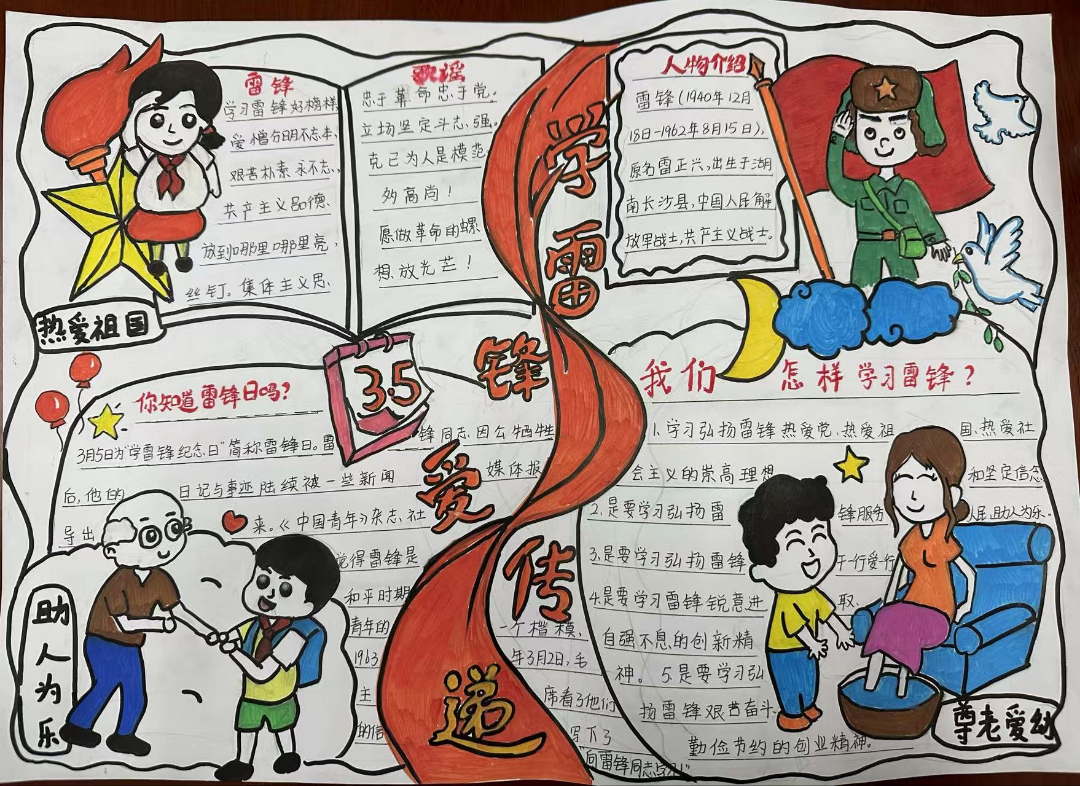 雷锋
学习雷锋好榜样
爱憎分明不忘本,
艰苦朴素永不忘,
共产主义品德
放到哪里哪里亮,
丝钉。集体主义思
歌谣
忠于革命忠于党。
立场坚定斗志强。
克己为人是模范
多高尚!
愿做革命的螺
想放光芒!
热爱祖国
学雷锋
爱传递
人物介绍
雷锋(1940年12月
18日-1962年8月15日),
原名雷正兴,出生于湖
南长沙县,中国人民解
放军战士,共产主义战士。
35
你知道雷锋日吗?
3月5日为“学雷锋纪念日”简称雷锋日。雷 锋同志因公牺牲
后,他的 日记与事迹陆续被一些新闻 媒体报
导出 来。《中国青年》杂志社
觉得雷锋是
和平时期
青年的 一个楷模,
1963 年3月2日,毛
主 席看了他们
的信 写下了
“向雷锋同志学习”
助人为乐
我们怎样学习雷锋?
1.学习弘扬雷锋热爱党、热爱祖 国、热爱社
会主义的崇高理想 和坚定信念
2.是要学习弘扬雷 锋服务 人民助人为乐。
3.是要学习弘扬雷锋 干一行爱一行
4.是要学习雷锋锐意进 取、
自强不息的创新精
神。5.是要学习弘
扬雷锋艰苦奋斗
勤俭节约的创业精神。
尊老爱幼